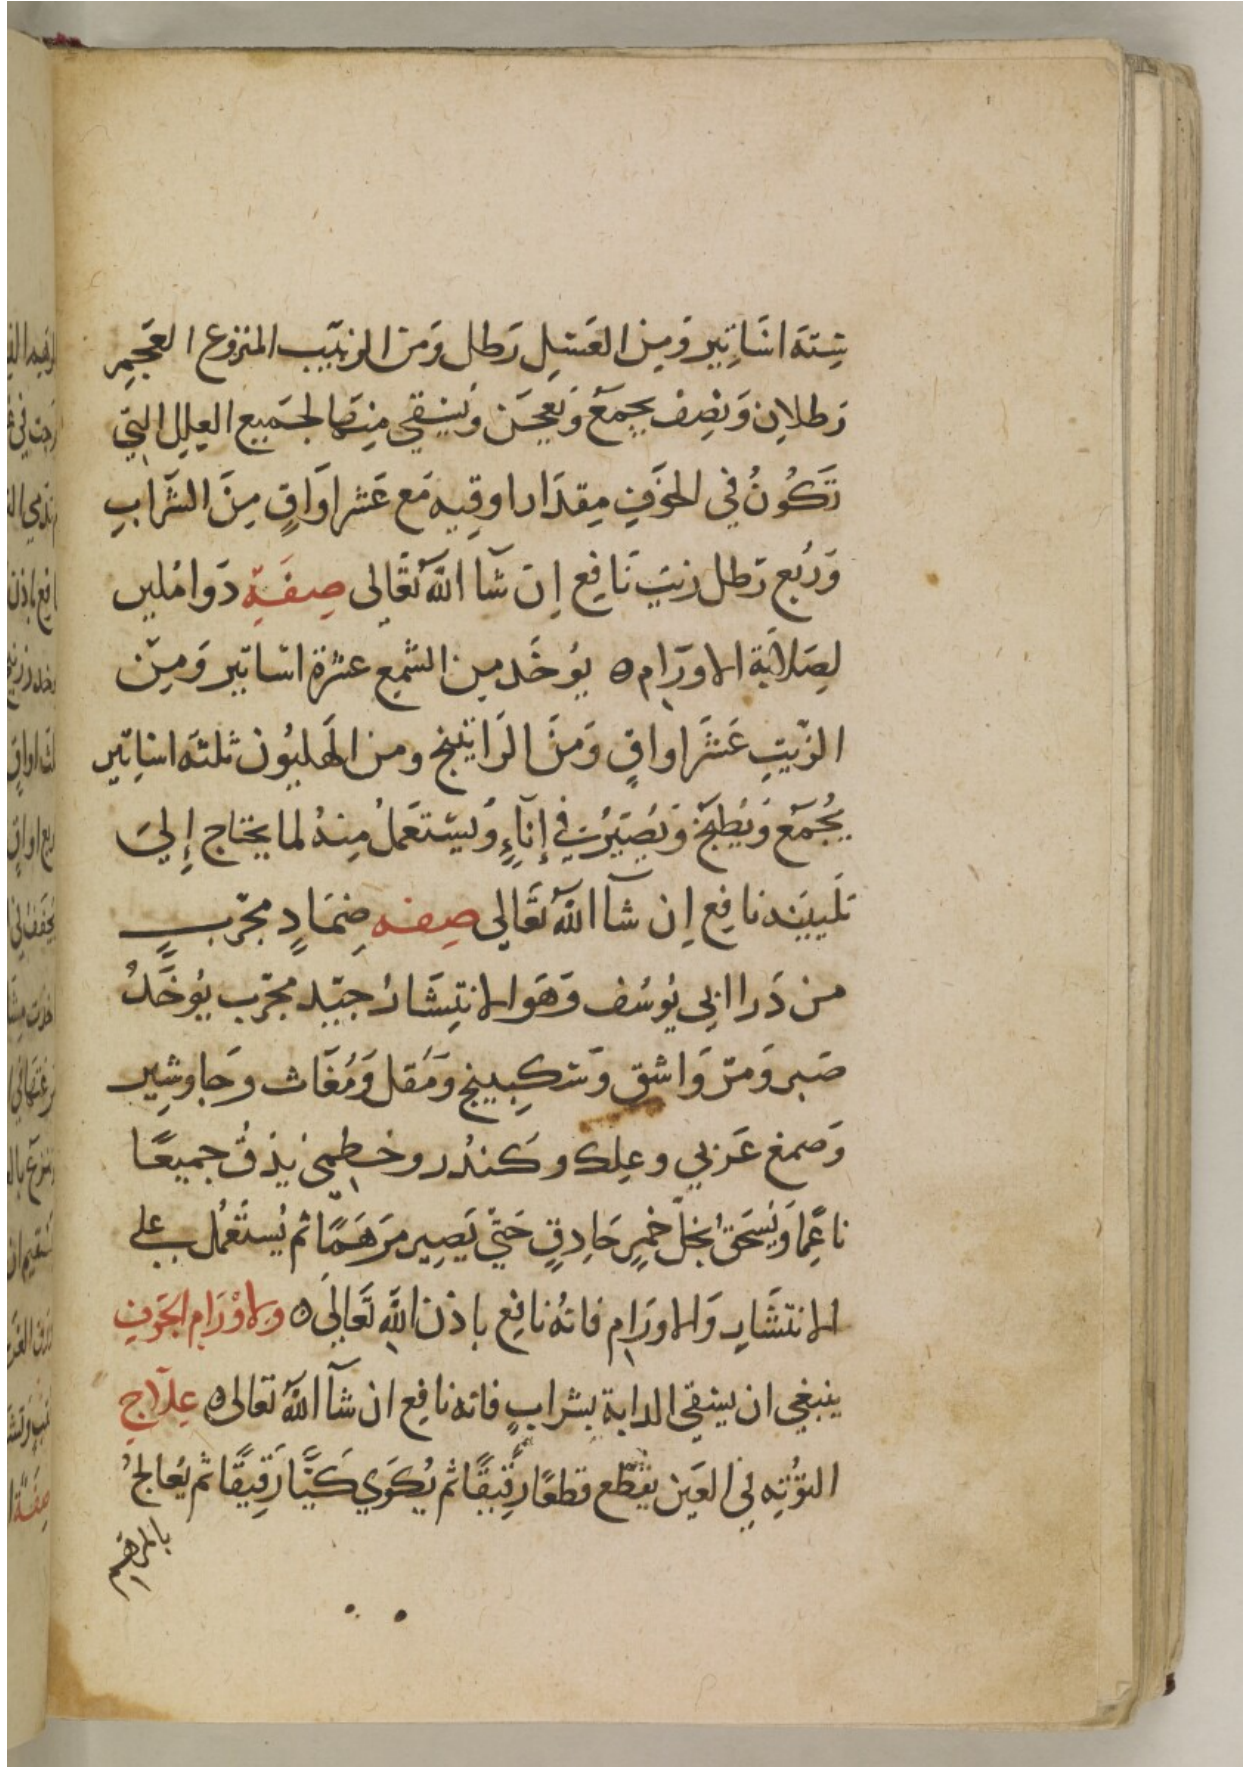 ستة اساتير ومن العسل رطل ومن الزبيب المنزوع العجم
رطلان ونصف يجمع ويعجن ويسقي منها لجميع العلل التي
تكون في الجوف مقدار اوقيه مع عشر اواق من الشراب
وربع رطل زيت نافع ان شآ الله تعالى صفة دوا مليں
لصلابة الاورام ه يوخد من الشمع عشرة اساتير ومن
الزيت عشر اواق ومن الراتينج ومن الهليون ثلثه اساتير
يجمع ويطبخ ويصير في إناء ويستعمل منه لما يحتاج إلى
تليينه نافع ان شآ الله تعالى صفه ضماد مجرب
من درا ابي يوسف وهو الانتشار جيد مجرب يوخد
صبر ومر واشق وسكبينج ومقل ومغاث وجاوشير
وصمغ عربي وعلك وكندر وخطمى يدق جميعا
ناعما ويسحق بخل خمر حادق حتي يصير مرهما ثم يستعمل على
الانتشار والاورام فانه نافع باذن الله تعالى ه ولاورام الجوف
ينبغي ان يسقي الدابة بشراب فانه نافع ان شآ الله تعالى ه علاج
التوته في العين يقطع قطعا رقيقا ثم يكوي كيا رقيقا ثم يعالج
بالمرهم